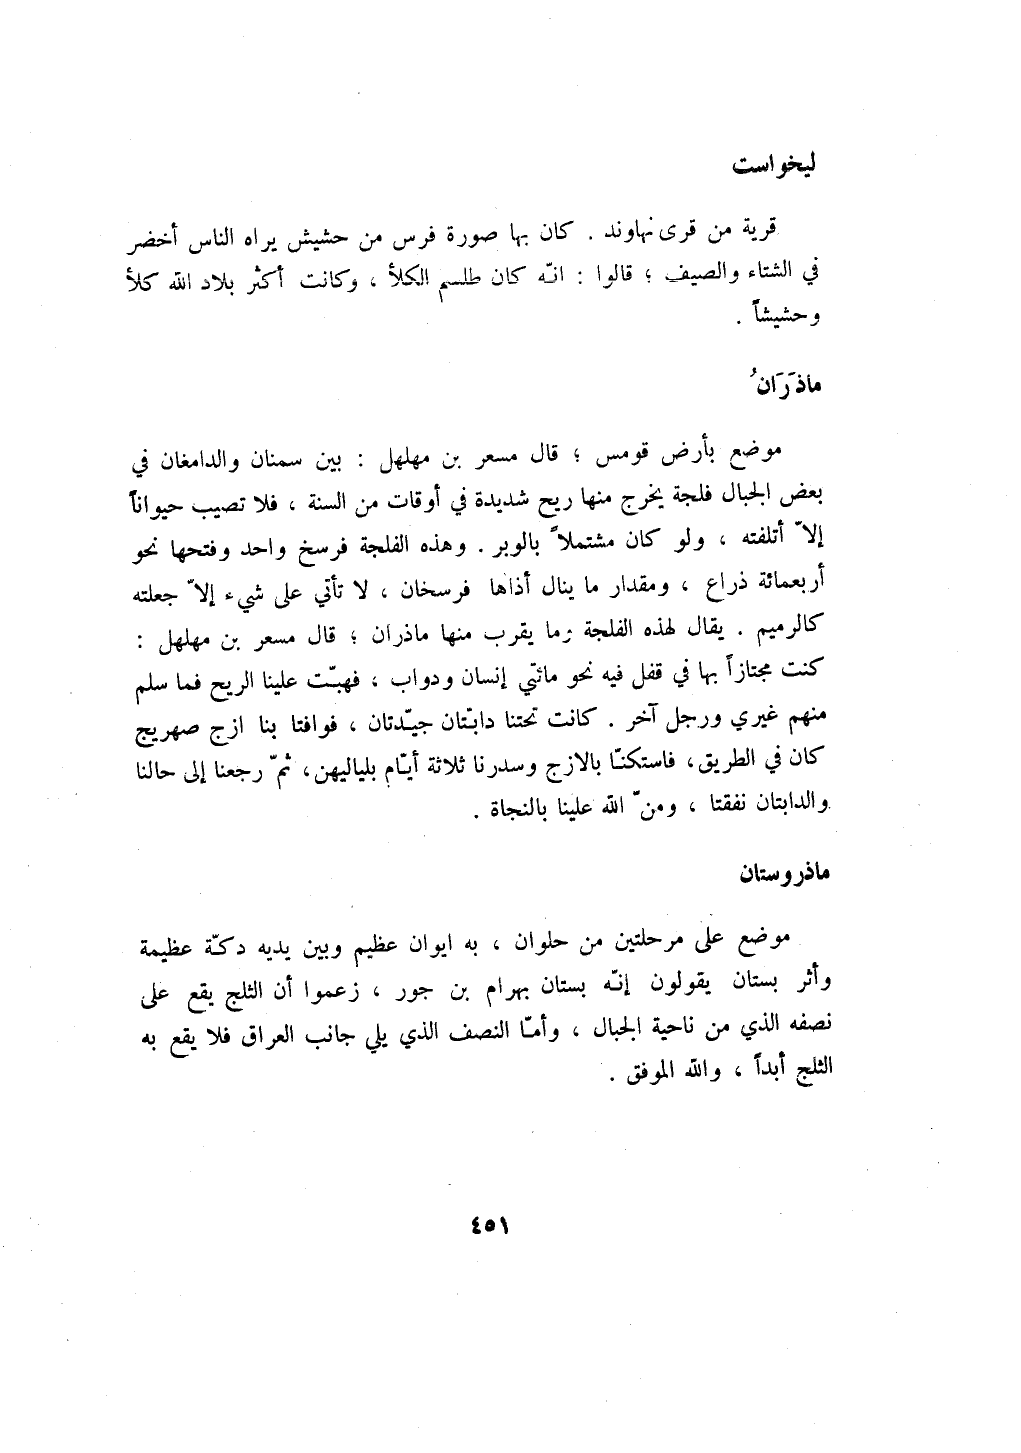 ليخواست
قرية من قرى نهاوند . كان بها صورة فرس من حشيش يراه الناس أخضر
في الشتاء والصيف ؛ قالوا : انّه كان طلسم الكلأ ، وكانت أكثر بلاد الله كلأ
وحشيشاً .
ماذَرَانُ
موضع بأرض قومس ؛ قال مسعر بن مهلهل : بين سمنان والدامغان في
بعض الجبال فلجة يخرج منها ريح شديدة في أوقات من السنة ، فلا تصيب حيواناً
إلاّ أتلفته ، ولو كان مشتملاً بالوبر . وهذه الفلجة فرسخ واحد وفتحها نحو
أربعمائة ذراع ، ومقدار ما ينال أذاها فرسخان ، لا تأتي على شيء إلاّ جعلته
كالرميم . يقال لهذه الفلجة وما يقرب منها ماذران ؛ قال مسعر بن مهلهل :
كنت مجتازاً بها في قفل فيه نحو مائتي إنسان ودواب ، فهبّت علينا الريح فما سلم
منهم غيري ورجل آخر . كانت تحتنا دابّتان جيّدتان ، فوافتا بنا ازج صهريج
كان في الطريق ، فاستكنّا بالازج وسدرنا ثلاثة أيّام بلياليهن ، ثمّ رجعنا إلى حالنا
والدابتان نفقتا ، ومنّ الله علينا بالنجاة .
ماذروستان
موضع على مرحلتين من حلوان ، به ايوان عظيم وبين يديه دكّة عظيمة
وأثر بستان يقولون إنّه بستان بهرام بن جور ، زعموا أن الثلج يقع على
نصفه الذي من ناحية الجبال ، وأمّا النصف الذي يلي جانب العراق فلا يقع به
الثلج أبداً ، والله الموفق .
٤٥١